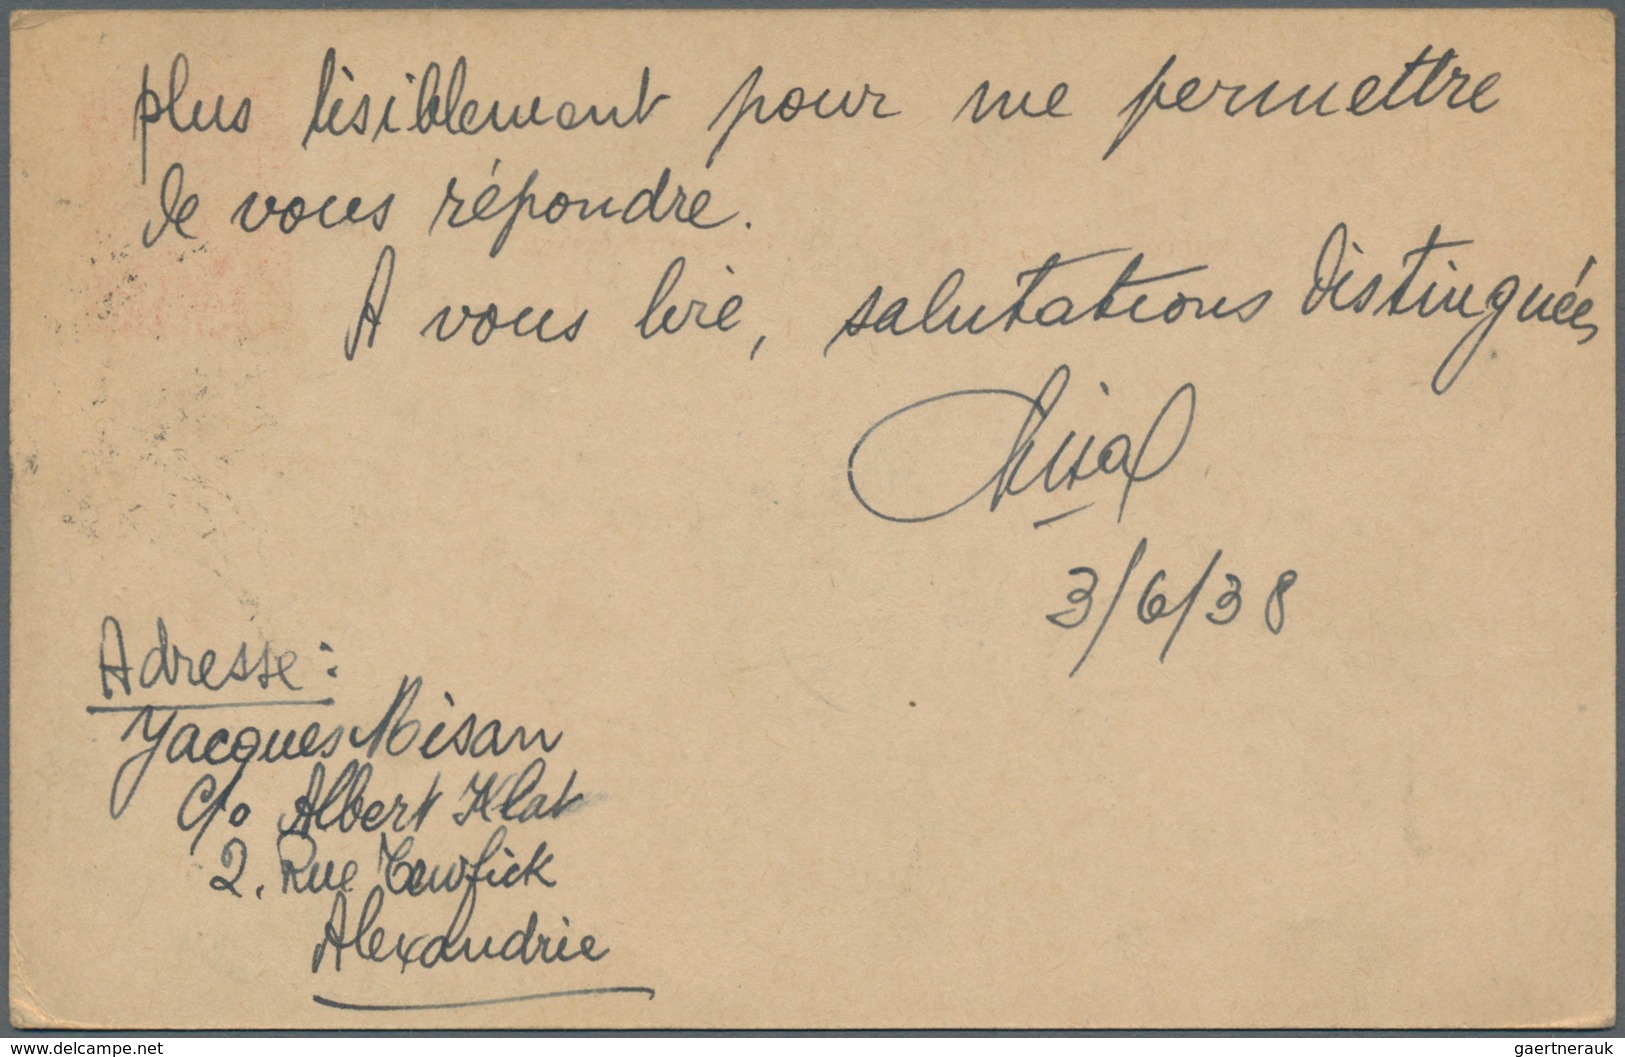 plus lisiblement pour me permettre
de vous répondre.
A vous lire, salutations distinguées
3/6/38
Adresse:
Jacques Misan
c/o Albert Klat
2, Rue Tewfick
Alexandrie
delcampe.net
gaertnerauk